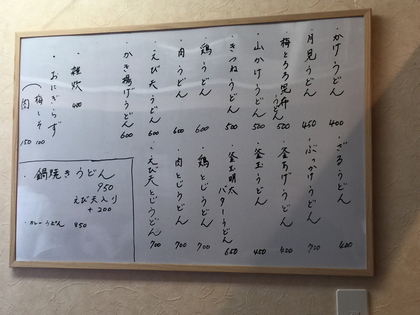 ・かけうどん 400
・月見うどん 450
・梅とろろ昆布うどん 500
・山かけうどん 500
・きつねうどん 500
・鶏うどん 600
・肉うどん 600
・えび天うどん 600
・かき揚げうどん 600
・雑炊 400
・おにぎらず
（梅しそ 100
肉 150
・ざるうどん 400
・ぶっかけうどん
・釜あげうどん 400
・釜玉うどん 450
釜玉明太バターうどん 650
・鶏とじうどん 700
・肉とじうどん 700
・えび天とじうどん 700
・鍋焼きうどん
950
えび天入り
+200
・カレーうどん 850